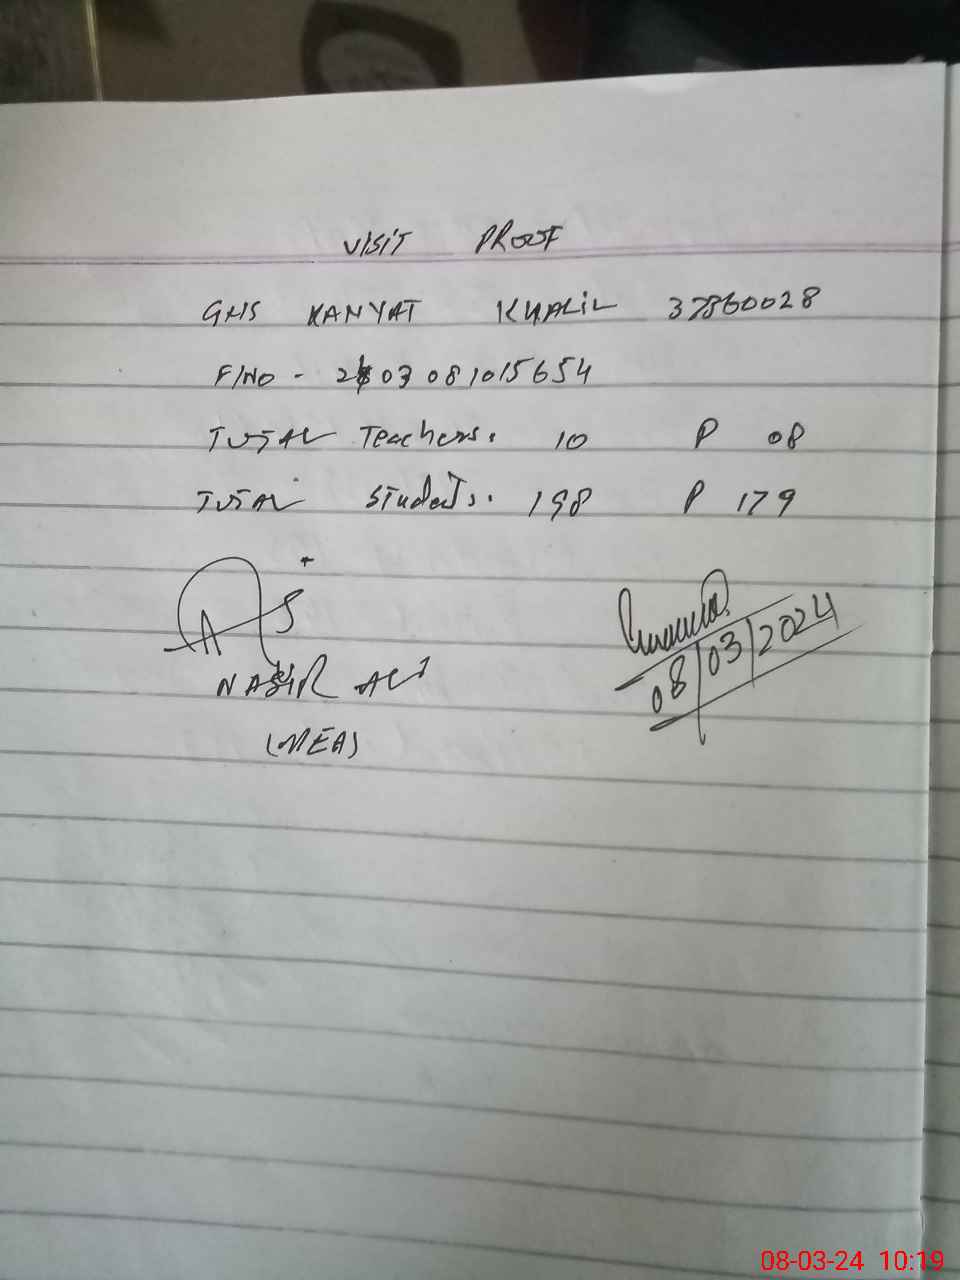 VISIT PROOF
GHS KANYAT KHALIL 37360028
F/NO - 2403081015654
TOTAL Teachers. 10 P 08
TOTAL Students. 198 P 179
NASIR ALI
(MEA)
08/03/2024
08-03-24 10:19